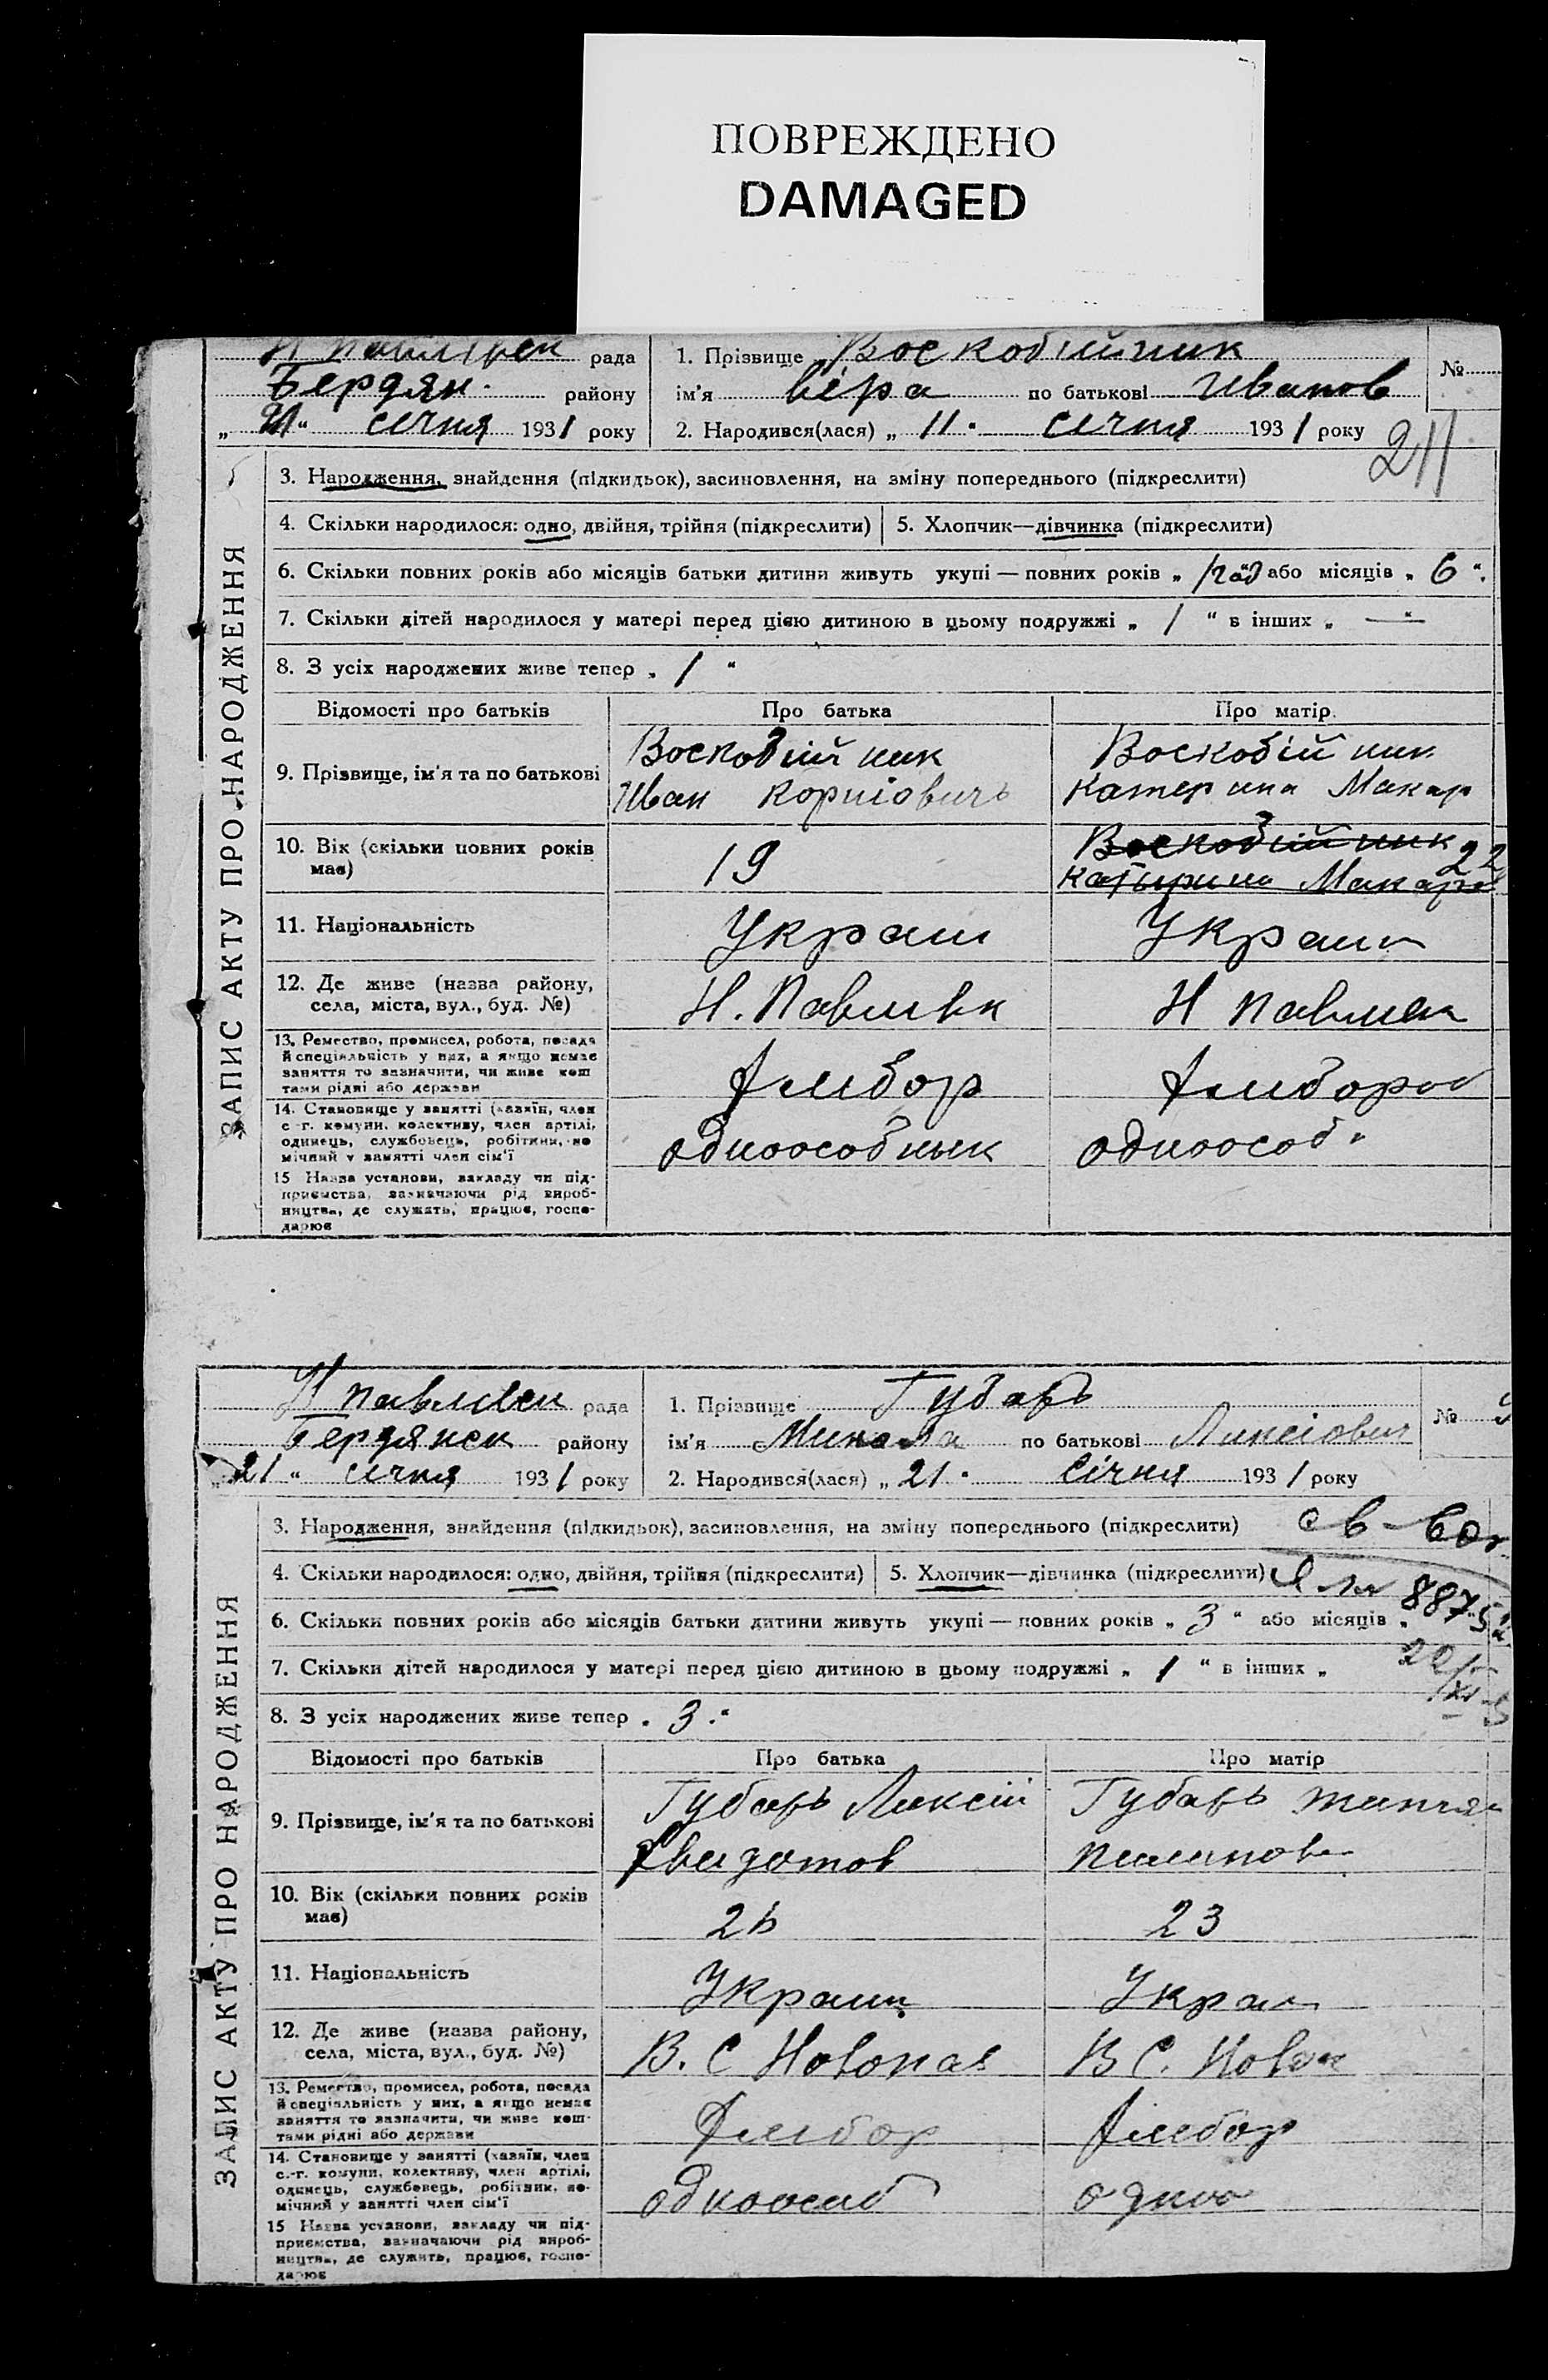 ПОВРЕЖДЕНО
DAMAGED
рада
Бердян. району
21 " січня 1931 року
1. Прізвище Воскобійник
ім'я Віра по батькові Иванов
№
2. Народився(лася) „ 11 " січня 1931 року
211
ЗАПИС АКТУ ПРО НАРОДЖЕННЯ
3. Народження, знайдення (підкидьок), засиновлення, на зміну попереднього (підкреслити)
4. Скільки народилося: одно, двійня, трійня (підкреслити) 5. Хлопчик—дівчинка (підкреслити)
6. Скільки повних років або місяців батьки дитини живуть укупі — повних років „ 1 год " або місяців „ 6 ".
7. Скільки дітей народилося у матері перед цією дитиною в цьому подружжі „ 1 " в інших „ — "
8. З усіх народжених живе тепер „ 1 "
Відомості про батьків Про батька Про матір
9. Прізвище, ім'я та по батькові
Воскобійник
Иван Корнiовичь
Воскобійник
Катерина Макар
10. Вік (скільки повних років має)
19
Воскобійник 22
Макар
11. Національність
Украин
Украин
12. Де живе (назва району,
села, міста, вул., буд. №)
Н. Павлівк
Н Павлівк
13. Ремество, промисел, робота, посада
й спеціальність у них, а якщо немає
заняття то зазначити, чи живе кош
тами рідні або держави
Хлибор
Хлибороб
14. Становище у занятті (хазяїн, член
с-г. комуни, колективу, член артілі,
одинець, службовець, робітник, по
мічний у занятті член сім'ї
одноособнык
одноособ.
15 Назва установи, закладу чи під-
приємства, зазначаючи рід вироб-
ництва, де служать, працює, госпо-
дарює
Н Павлівск рада
Бердянск району
21 " січня 1931 року
1. Прізвище Губарь
ім'я Микола по батькові Ликсіович
№
2. Народився(лася) „ 21 " Січня 1931 року
ЗАПИС АКТУ ПРО НАРОДЖЕННЯ
3. Народження, знайдення (підкидьок), засиновлення, на зміну попереднього (підкреслити)
4. Скільки народилося: одно, двійня, трійня (підкреслити) 5. Хлопчик—дівчинка (підкреслити)
6. Скільки повних років або місяців батьки дитини живуть укупі — повних років „ 3 " або місяців „
7. Скільки дітей народилося у матері перед цією дитиною в цьому подружжі „ 1 " в інших „
8. З усіх народжених живе тепер „ 3 "
Відомості про батьків Про батька Про матір
9. Прізвище, ім'я та по батькові
Губарь Ликсій
Губарь
10. Вік (скільки повних років має)
23
11. Національність
Украин
Украи
12. Де живе (назва району,
села, міста, вул., буд. №)
В. С Новопав
В С. Новоп
13. Ремество, промисел, робота, посада
й спеціальність у них, а якщо немає
заняття то зазначити, чи живе кош-
тами рідні або держави
Хлибор
Хлибор
14. Становище у занятті (хазяїн, член
с.-г. комуни, колективу, член артілі,
одинець, службовець, робітник, по-
мічний у занятті член сім'ї
одноосиб
одноо
15 Назва установи, закладу чи під-
приємства, зазначаючи рід вироб-
ництва, де служить, працює, госпо-
дарює